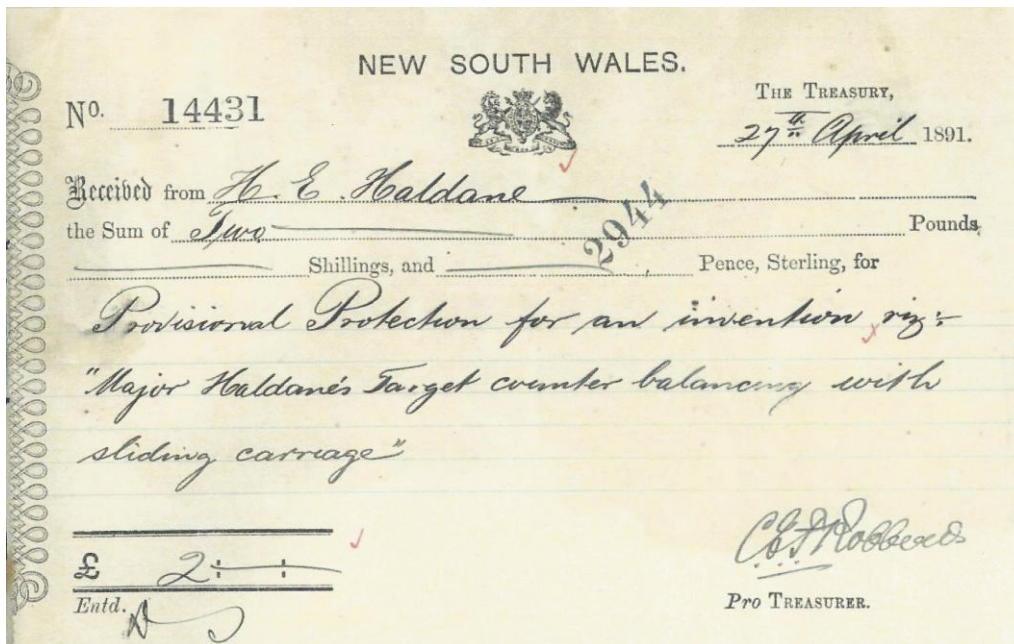 NEW SOUTH WALES.
No. 14431
THE TREASURY,
27th April 1891.
Received from H. E. Haldane
the Sum of Two Pounds,
2944
Shillings, and Pence, Sterling, for
Provisional Protection for an invention viz:-
"Major Haldane's Target counter balancing with
sliding carriage"
£ 2 : :
Entd.
Pro TREASURER.